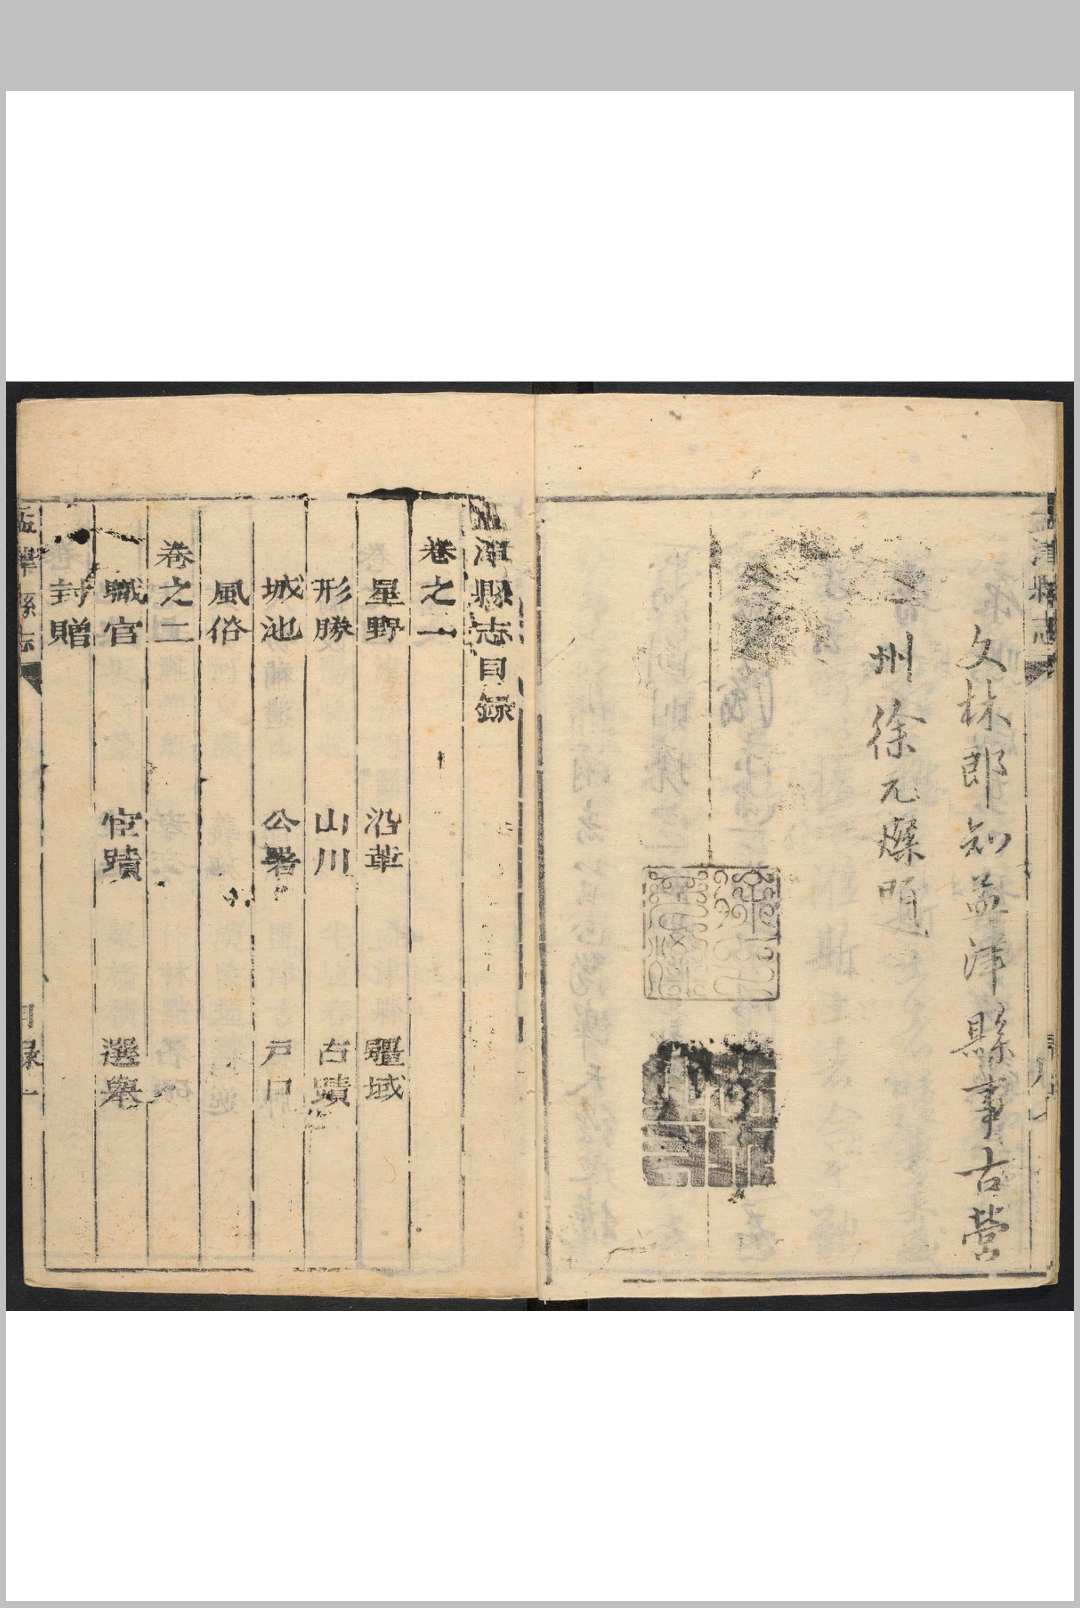 文林郎知孟津縣事古營
州徐元燦明
津縣志目録
卷之一
星野 沿革 疆域
形勝 山川 古蹟
城池 公署 戸口
風俗
卷之二
職官 宦蹟 選舉
封贈
孟津縣志
目録 一